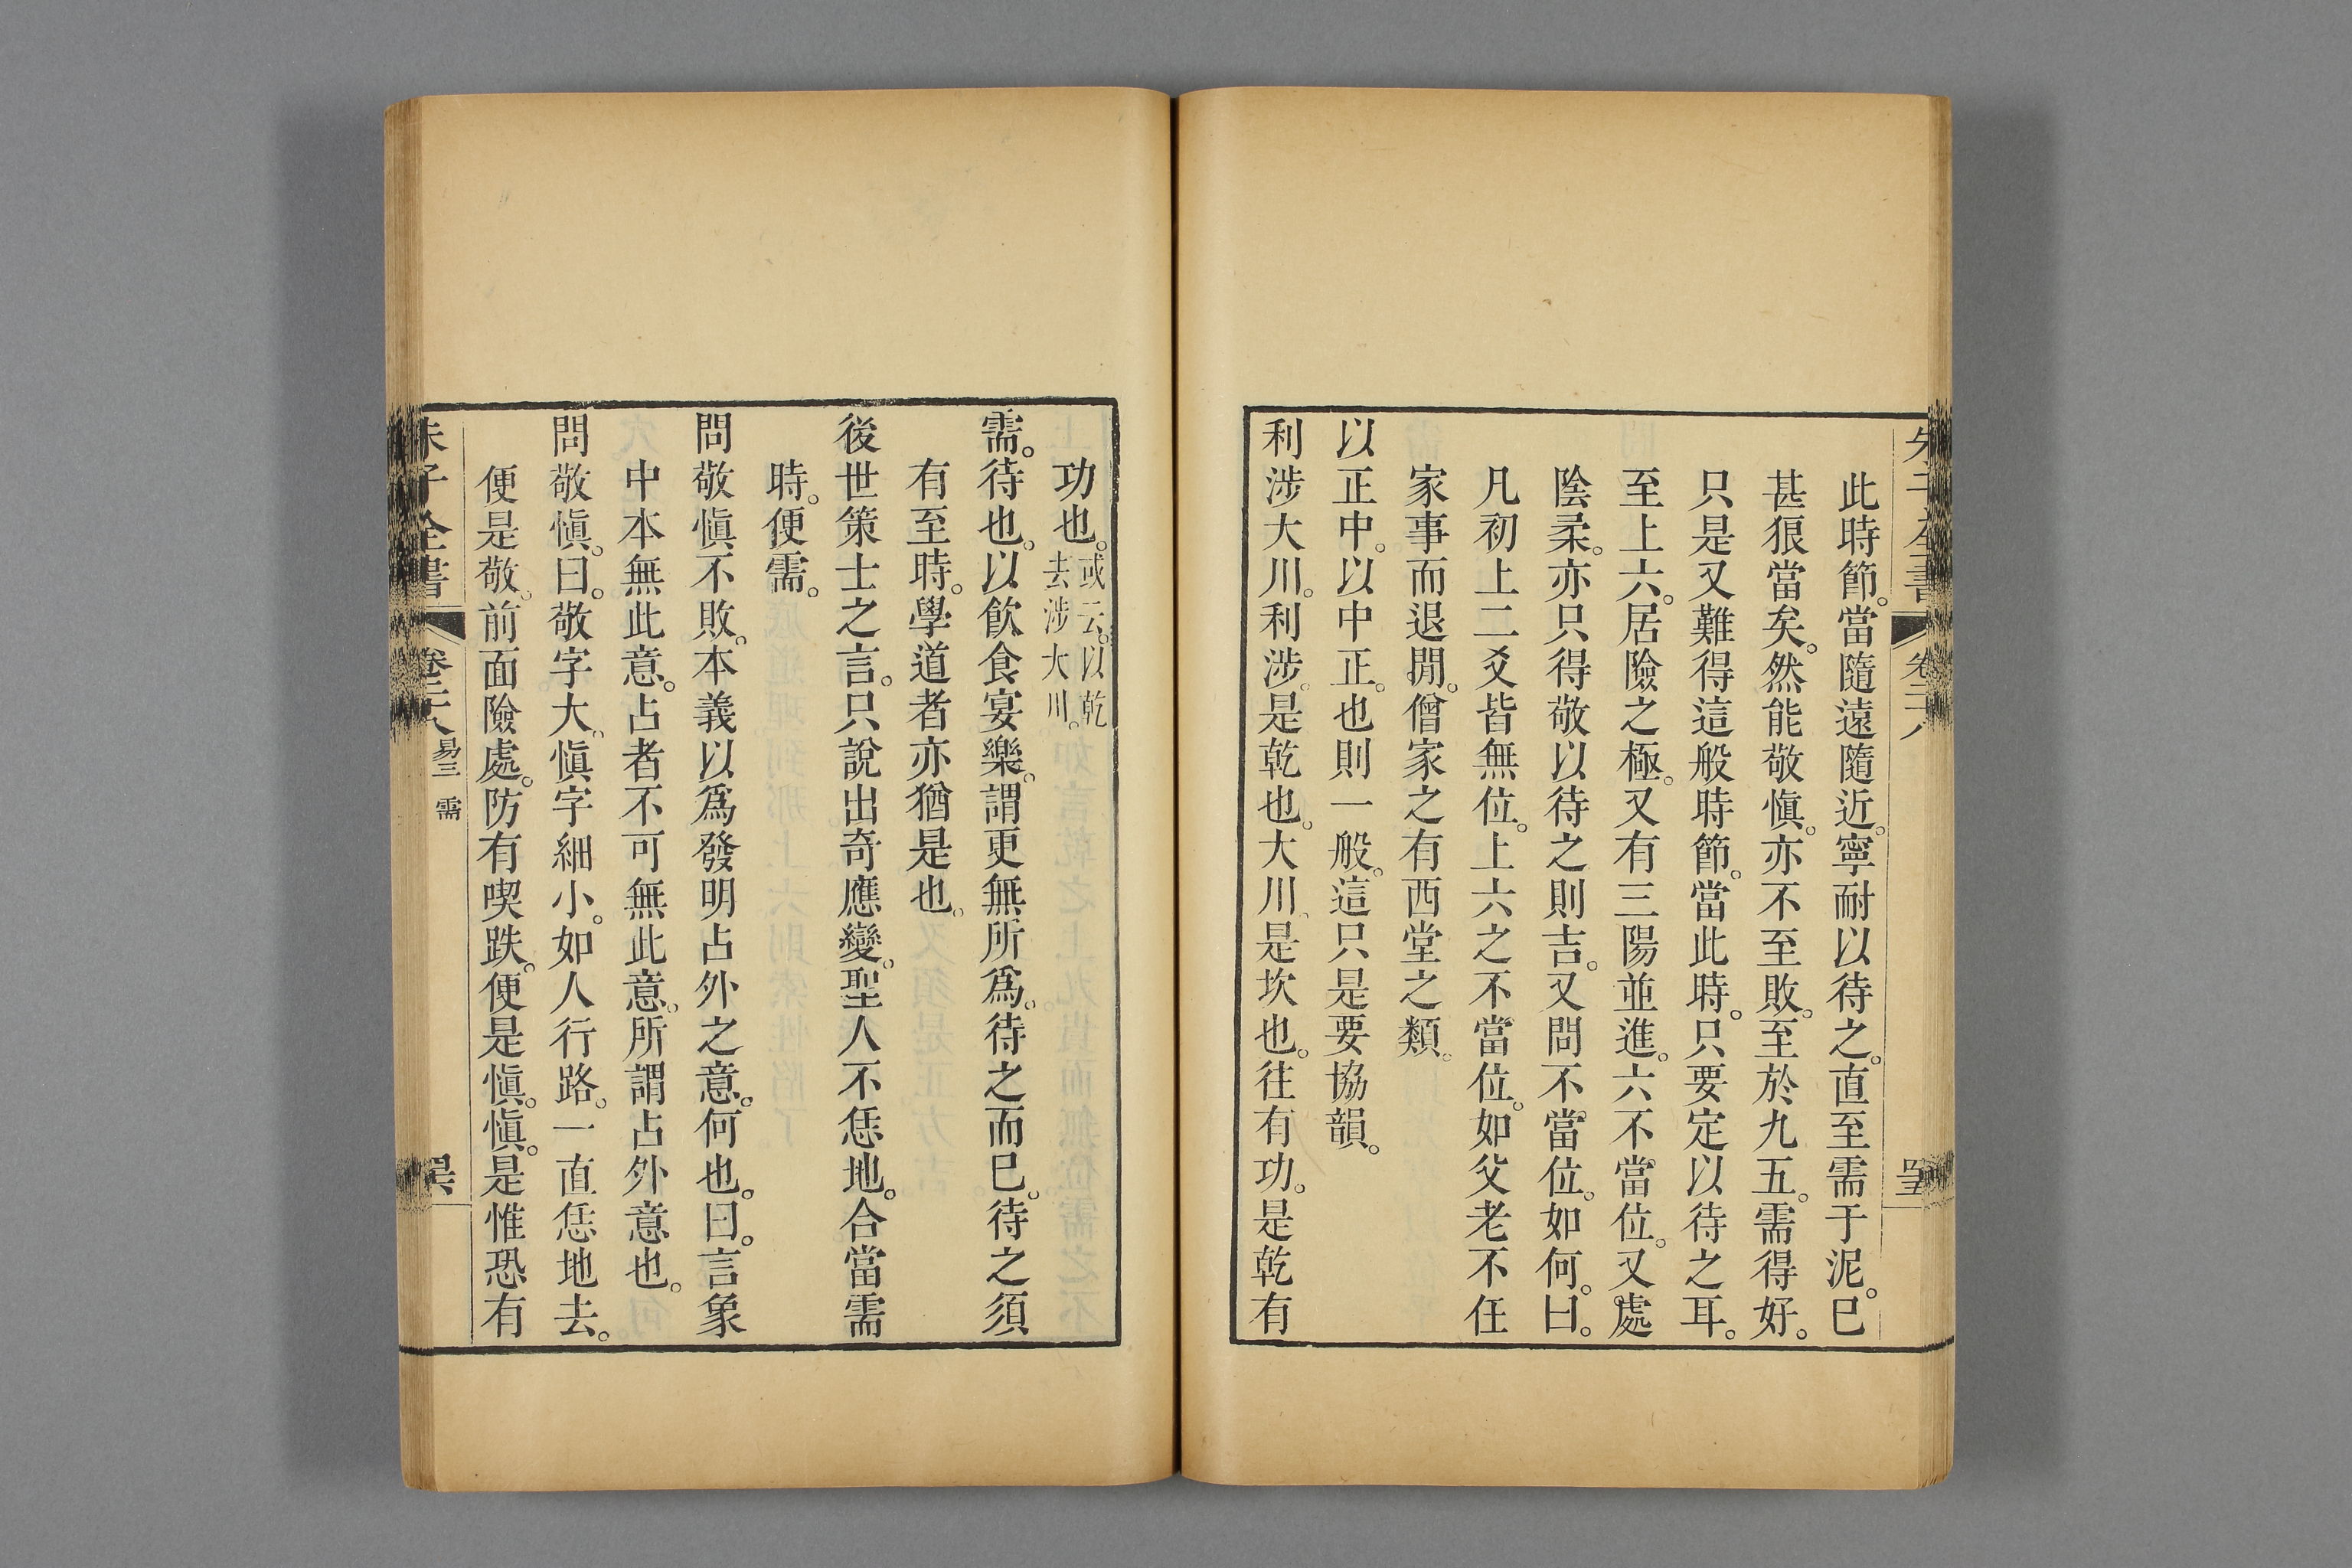 朱子全書 卷二十八
此時節。當隨遠隨近。寧耐以待之。直至需于泥。已
甚狼當矣。然能敬愼。亦不至敗。至於九五。需得好。
只是又難得這般時節。當此時。只要定以待之耳。
至上六。居險之極。又有三陽並進。六不當位。又處
陰柔。亦只得敬以待之則吉。又問不當位。如何。曰。
凡初上二爻皆無位。上六之不當位。如父老不任
家事而退閒。僧家之有西堂之類。
以正中。以中正。也則一般。這只是要協韻。
利涉大川。利涉。是乾也。大川。是坎也。往有功。是乾有
功也。或云。以乾去涉大川。
需。待也。以飮食宴樂。謂更無所爲。待之而已。待之須
有至時。學道者亦猶是也。
後世策士之言。只說出奇應變。聖人不恁地。合當需
時。便需。
問敬愼不敗。本義以爲發明占外之意。何也。曰。言象
中本無此意。占者不可無此意。所謂占外意也。
問敬愼。曰。敬字大。愼字細小。如人行路。一直恁地去。
便是敬。前面險處。防有喫跌。便是愼。愼。是惟恐有
朱子全書 卷二十八 易三 需